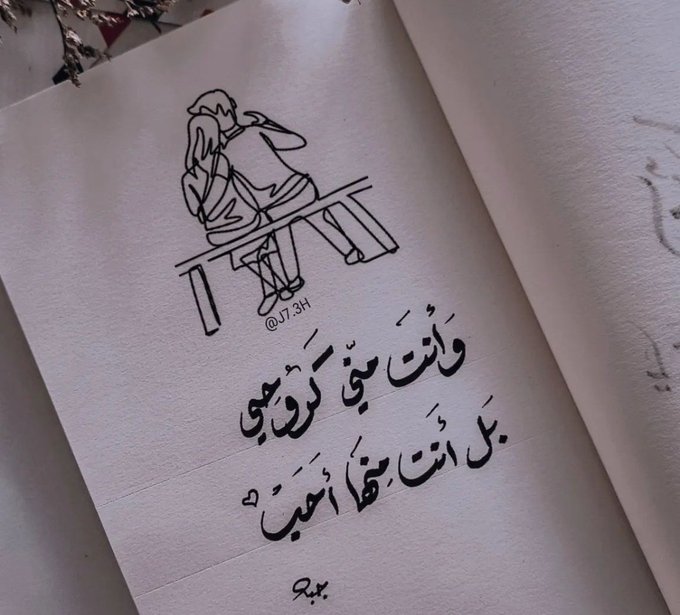 @J7.3H
وَأنتَ مِنّي كَرُوحِي
بَل أنتَ مِنهَا أحَبّ